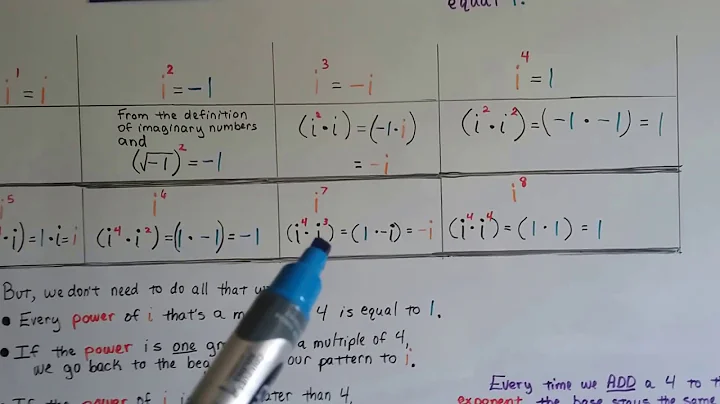 equal 1.
i¹ = i
i² = -1
i³ = -i
i⁴ = 1
From the definition
of imaginary numbers
and
(√-1)² = -1
(i²·i) = (-1·i)
= -i
(i²·i²) = (-1·-1) = 1
i⁵
·i) = 1·i = i
i⁶
(i⁴·i²) = (1·-1) = -1
i⁷
(i⁴·i³) = (1·-i) = -i
i⁸
(i⁴·i⁴) = (1·1) = 1
But, we don't need to do all that
• Every power of i that's a 4 is equal to 1.
• If the power is one a multiple of 4,
we go back to the our pattern to i.
than 4,
Every time we ADD a 4 to
exponent the base stays the same